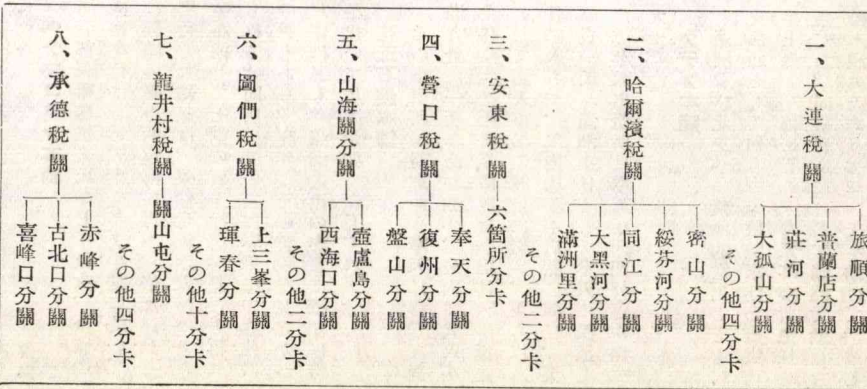 一、大連稅關
旅順分關
普蘭店分關
莊河分關
大孤山分關
その他四分卡
二、哈爾濱稅關
密山分關
綏芬河分關
同江分關
大黑河分關
滿洲里分關
その他二分卡
三、安東稅關―六箇所分卡
四、營口稅關
奉天分關
復州分關
盤山分關
五、山海關分關
壺盧島分關
西海口分關
その他二分卡
六、圖們稅關
上三峯分關
琿春分關
その他十分卡
七、龍井村稅關―關山屯分關
その他四分卡
八、承德稅關
赤峰分關
古北口分關
喜峰口分關